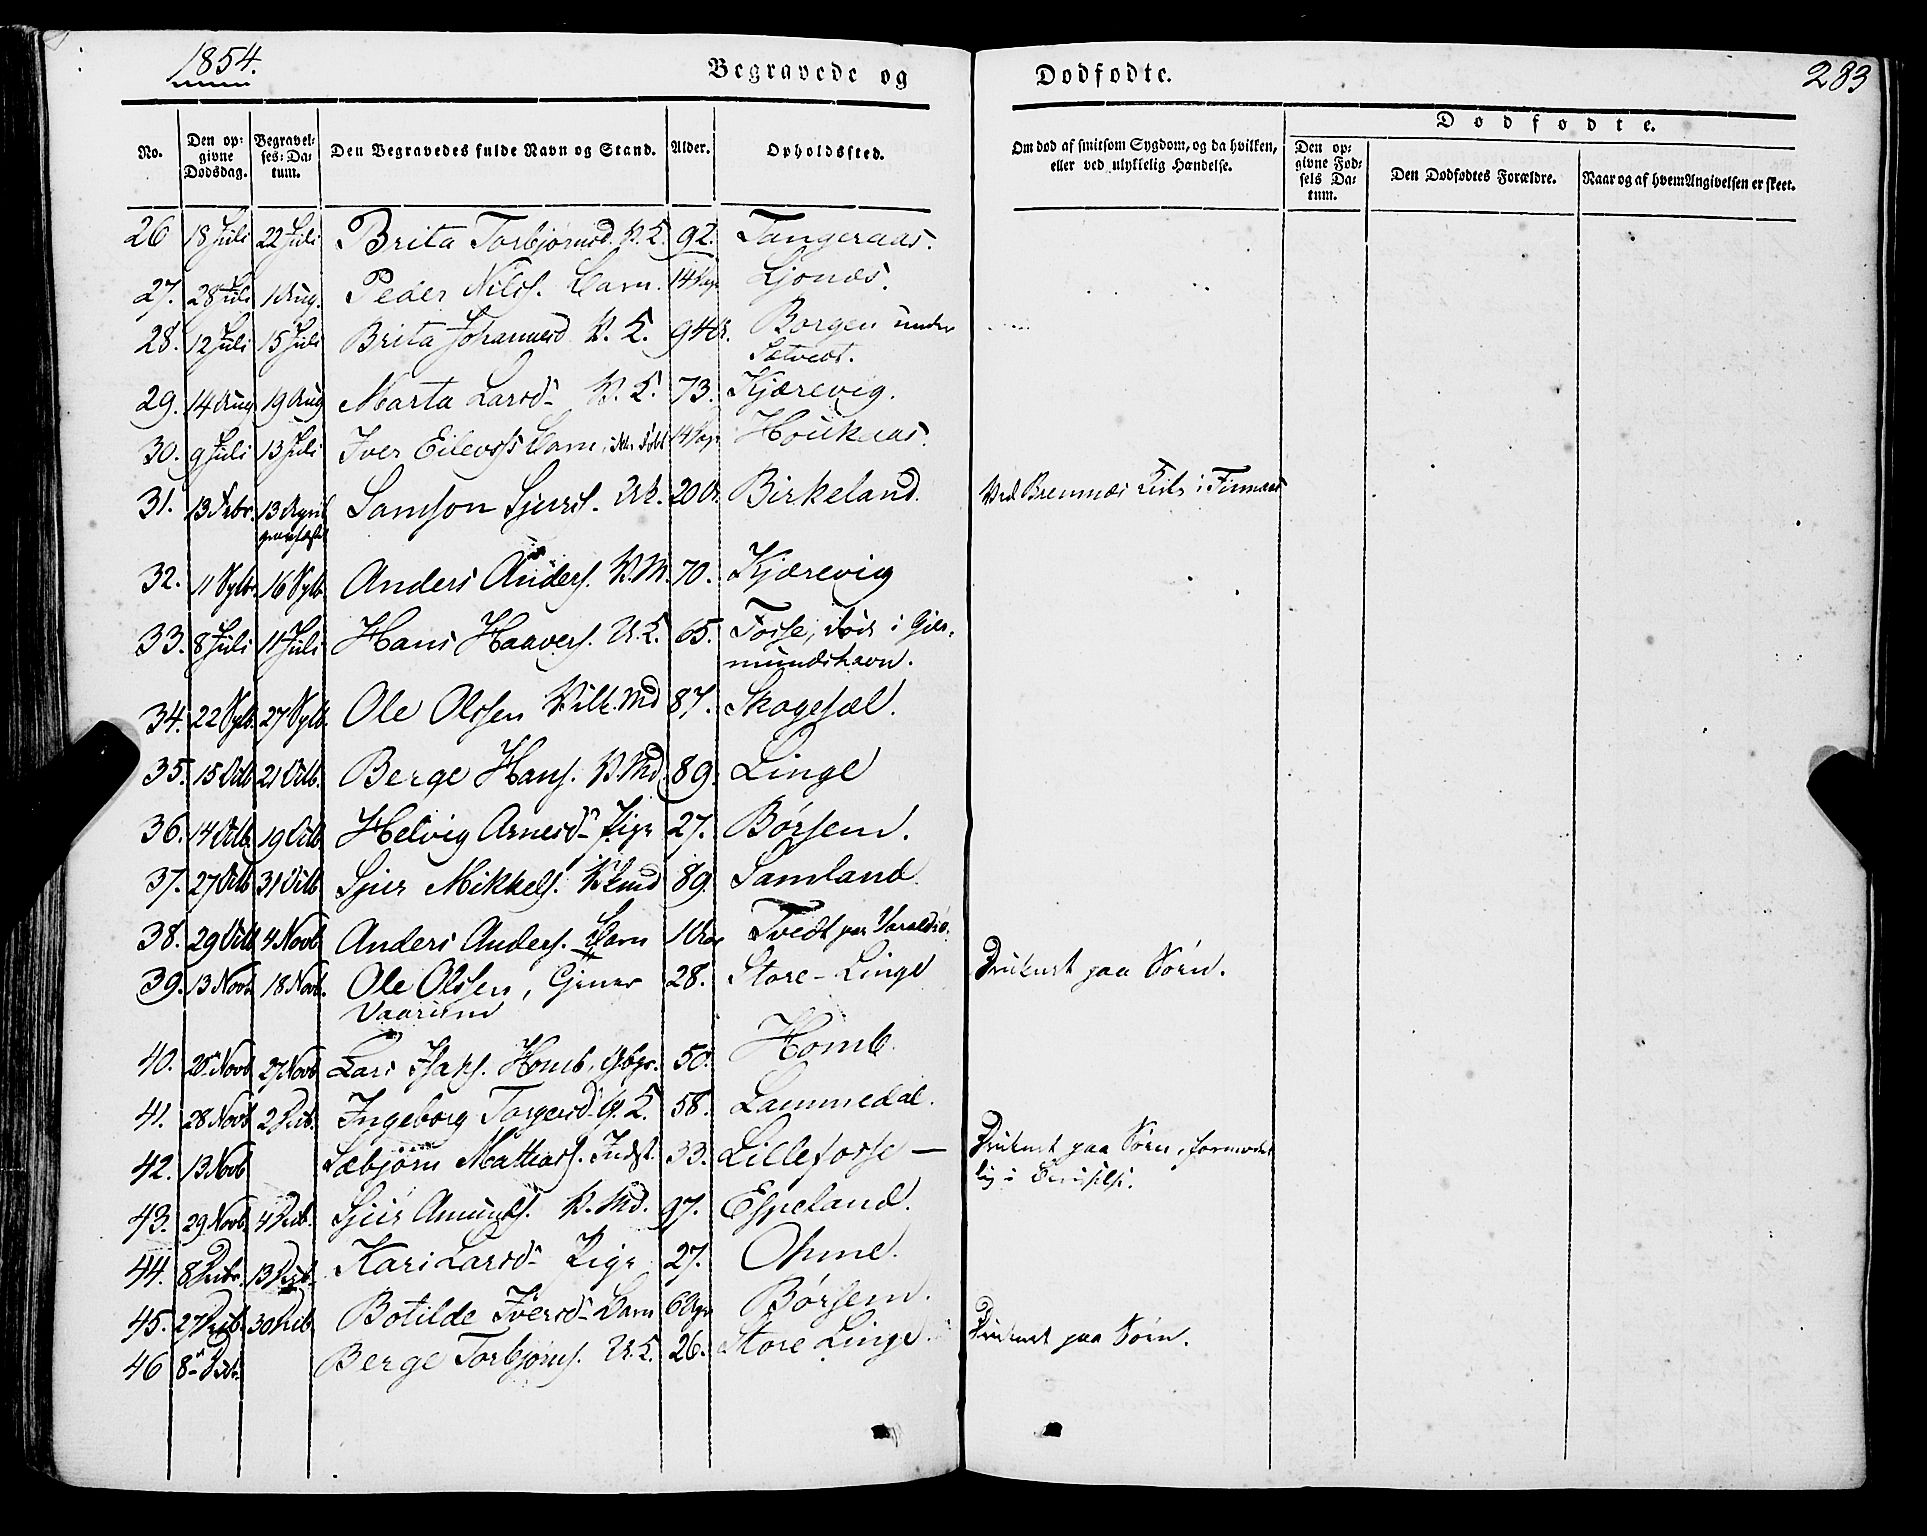 1854.
Begravede og
Dødfødte.
283
No.
Den opgivne Dødsdag.
Begravelses-Datum.
Den Begravedes fulde Navn og Stand.
Alder.
Opholdssted.
Om død af smitsom Sygdom, og da hvilken, eller ved ulykkelig Hændelse.
Dødfødte.
Den opgivne Fødsels Datum.
Den Dødfødtes Forældre.
Naar og af hvem Angivelsen er skeet.
26 18 Juli 22 Juli Brita Torbjørnsd. K. E. 92. Tangeraas.
27. 28 Juli 1 Aug. Peder Nilss. Barn. 14 Dage Ljonæs.
28. 12 Juli 15 Juli Brita Johannesd K. E. 94 Borgen under
Sætvedt.
29. 14 Aug 19 Aug Marta Larsd K. E. 73. Kjærevig.
30. 9 Juli 13 Juli Iver Eilevss Barn, ikke døbt 14 Dage Houkaas.
31. 13 Febr. 13 April Samson Sjurss. 20 Birkeland. Ved Bremnæs Kirke i Finnaas
32. 11 Sptb. 16 Sptb. Anders Anders. K. M. 70. Kjærevig
33. 8 Juli 11 Juli Hans Haavers. 65. Fosse, død i Gjer-
mundshavn.
34. 22 Sptb. 27 Sptb. Ole Olssen Md 87. Skogesæl.
35. 15 Octb 21 Octb. Berge Hans. K. Md. 89. Linge
36. 14 Octb 19 Octb. Helvig Arnesd Pige 27. Børsem.
37. 27 Octb 31 Octb Sjur Mikkels. 89. Samland.
38. 29 Octb 4 Novb Anders Anders. Barn Tvedt paa Varaldsø.
39. 13 Novb. 18 Novb. Ole Olssen, 28. Store-Linge Druknet paa Søen.
40. 20 Novb 27 Novb Lars Homb, Gbgr. 50. Homb.
41. 28 Novb 2 Decb. Ingeborg Torgersd G. E. 58. Lammedal.
42. 13 Novb Sæbjørn Mathias. Indst. 33. Lillefosse — Druknet paa Søen, formodet
lig i
43. 29 Novb. 4 Decb. Sjur Amunds. K. Md. 97. Espeland.
44. 8 Decb. 13 Decb. Kari Larsd Pige 27. Ohme.
45. 27 Decb. 30 Decb. Botilde Iversd Barn 6 Børsem.
46 8 Decb. Berge Torbjørns. 26. Store Linge Druknet paa Søen.